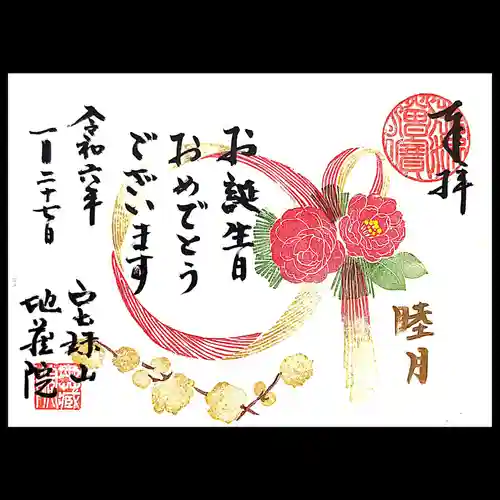 奉拝
睦月
お誕生日
おめでとう
ございます
令和六年
一月二十七日
宝珠山
地蔵院